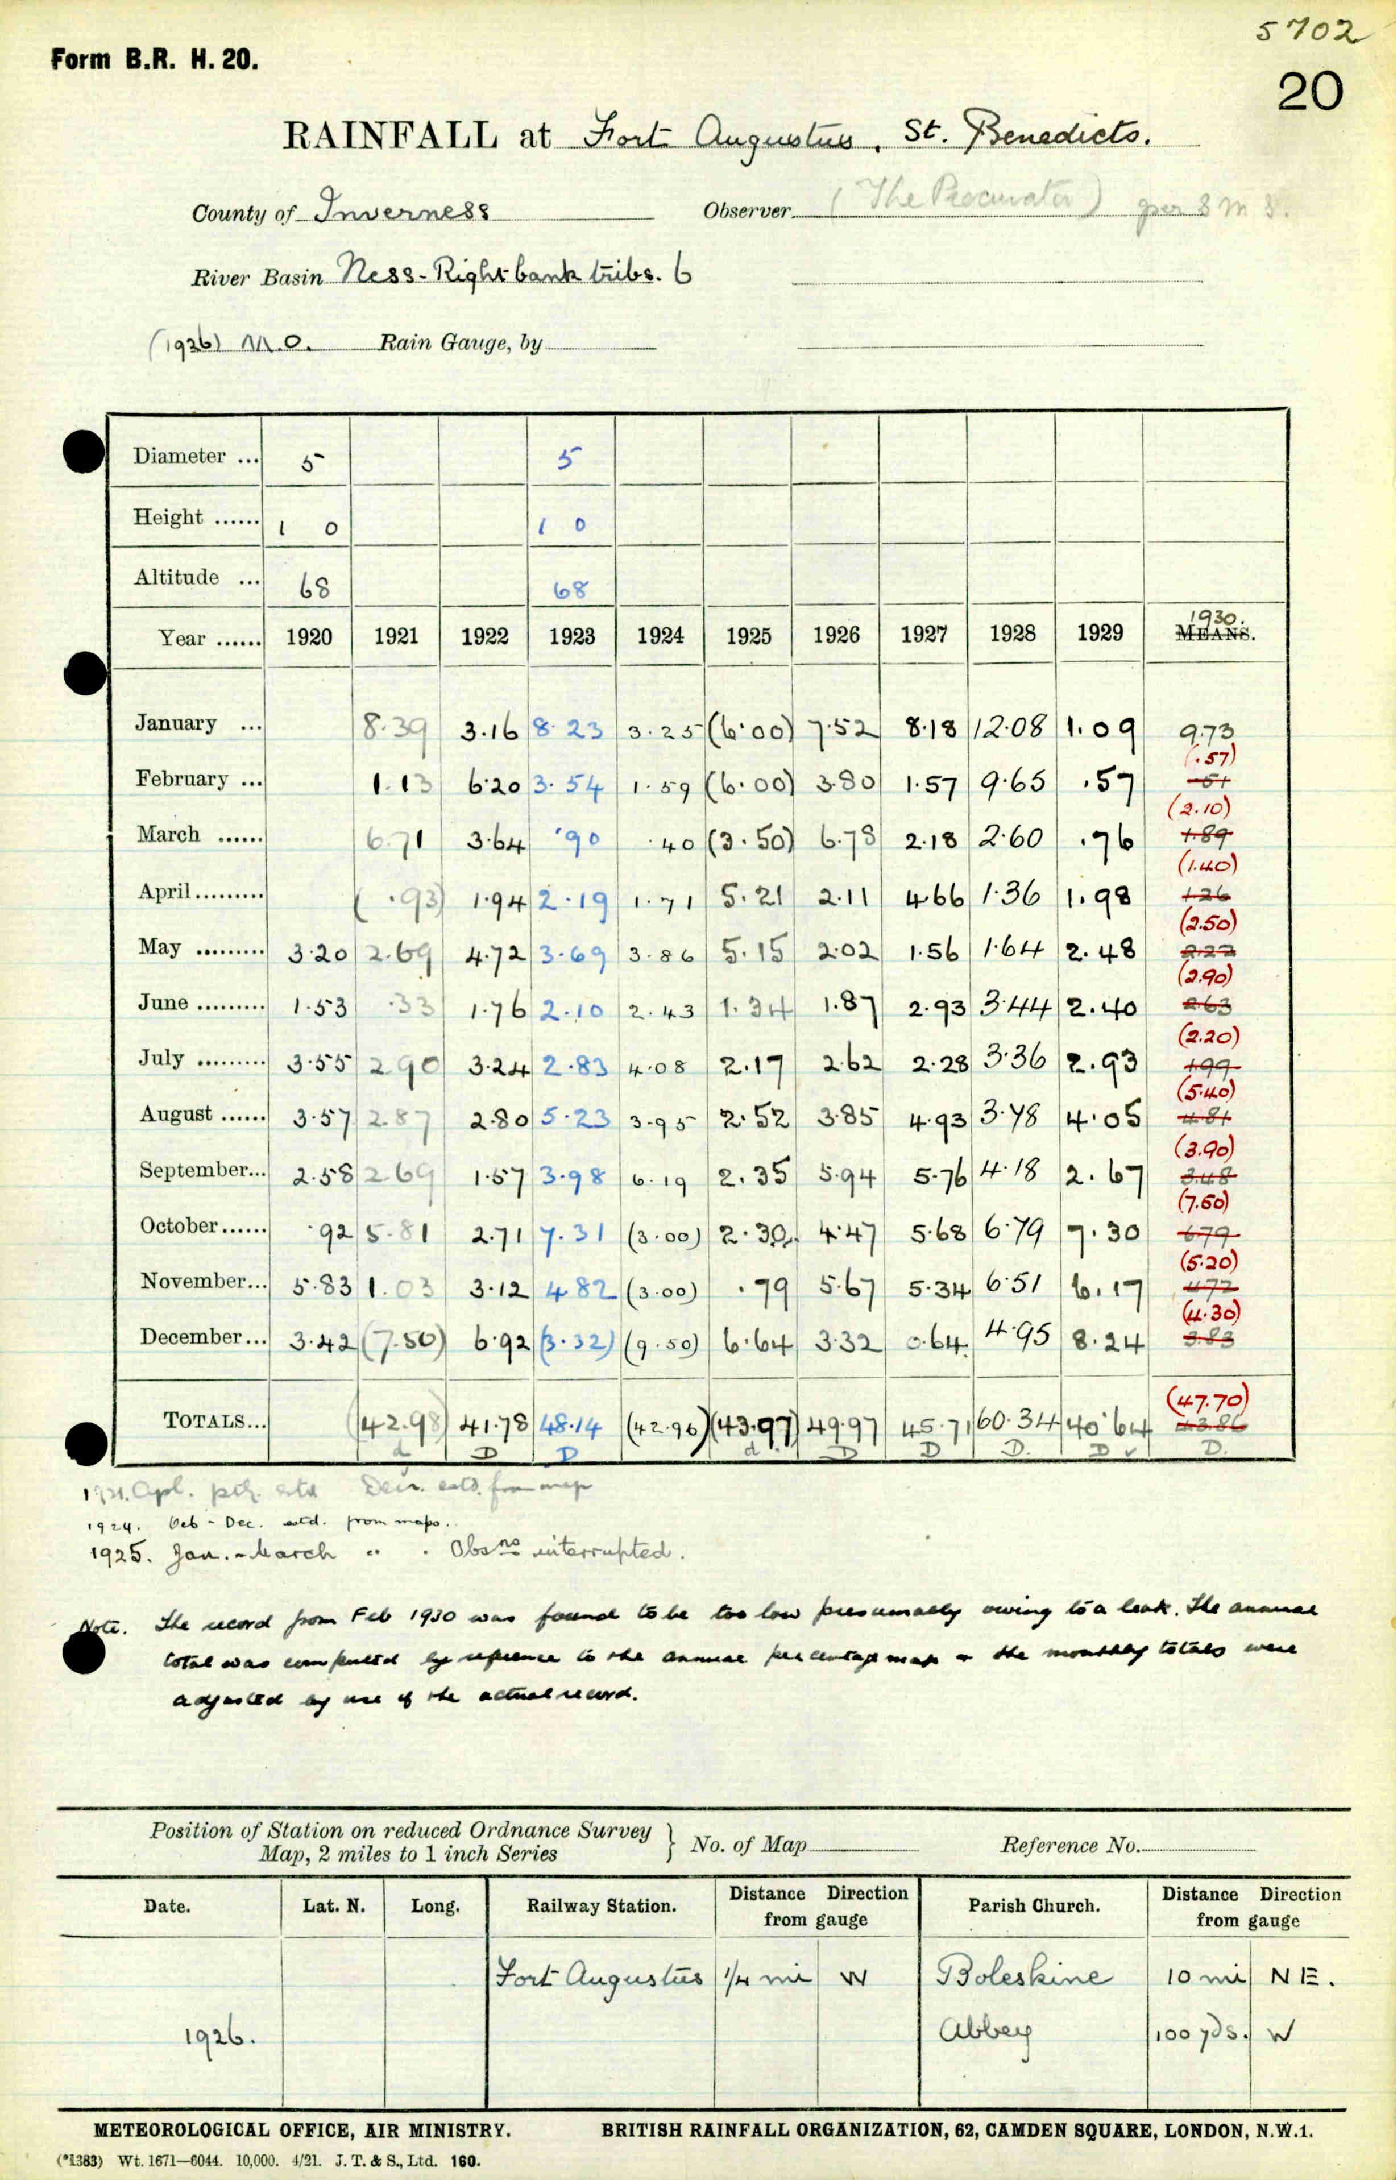 5702
Form B.R. H. 20.
20
RAINFALL at Fort Augustus, St. Benedicts.
County of Inverness Observer (The Procurator) per S M S.
River Basin Ness-Right bank tribs. 6
(1926) M.O. Rain Gauge, by
Diameter ... 5 5
Height ...... 1 0 1 0
Altitude ... 68 68
1930.
Year ...... 1920 1921 1922 1923 1924 1925 1926 1927 1928 1929 MEANS.
January ... 8.39 3.16 8.23 3.25 (6.00) 7.52 8.18 12.08 1.09 9.73
(.57)
February ... 1.13 6.20 3.54 1.59 (6.00) 3.80 1.57 9.65 .57 .51
(2.10)
March ...... 6.71 3.64 .90 .40 (3.50) 6.78 2.18 2.60 .76 1.89
(1.40)
April ......... (.93) 1.94 2.19 1.71 5.21 2.11 4.66 1.36 1.98 1.26
(2.50)
May ......... 3.20 2.69 4.72 3.69 3.86 5.15 2.02 1.56 1.64 2.48 2.22
(2.90)
June ......... 1.53 .33 1.76 2.10 2.43 1.34 1.87 2.93 3.44 2.40 2.63
(2.20)
July ......... 3.55 2.90 3.24 2.83 4.08 2.17 2.62 2.28 3.36 2.93 1.99
(5.40)
August ...... 3.57 2.87 2.80 5.23 3.95 2.52 3.85 4.93 3.78 4.05 4.81
(3.90)
September... 2.58 2.69 1.57 3.98 6.19 2.35 5.94 5.76 4.18 2.67 3.48
(7.60)
October...... .92 5.81 2.71 7.31 (3.00) 2.30 4.47 5.68 6.79 7.30 6.79
(5.20)
November... 5.83 1.03 3.12 4.82 (3.00) .79 5.67 5.34 6.51 6.17 4.72
(4.30)
December... 3.42 (7.50) 6.92 (3.32) (9.50) 6.64 3.32 0.64 4.95 8.24 3.83
(47.70)
TOTALS... (42.98) 41.78 48.14 (42.96) (43.97) 49.97 45.71 60.34 40.64 43.86
d D D d D D D. D ✓ D.
1921. Apl. ptly. estd Dec. estd. from map
1924. Oct - Dec. estd. from maps..
1925. Jan. - March " " Obsns interrupted.
Note. The record from Feb 1930 was found to be too low presumably owing to a leak. The annual
total was computed by reference to the annual percentage map & the monthly totals were
adjusted by use of the actual record.
Position of Station on reduced Ordnance Survey
Map, 2 miles to 1 inch Series } No. of Map Reference No.
Date. Lat. N. Long. Railway Station. Distance Direction from gauge Parish Church. Distance Direction from gauge
Fort Augustus 1/4 mi W Boleskine 10 mi NE.
1926. Abbey 100 yds. W
METEOROLOGICAL OFFICE, AIR MINISTRY. BRITISH RAINFALL ORGANIZATION, 62, CAMDEN SQUARE, LONDON, N.W.1.
(*1383) Wt. 1671—6044. 10,000. 4/21. J. T. & S., Ltd. 160.